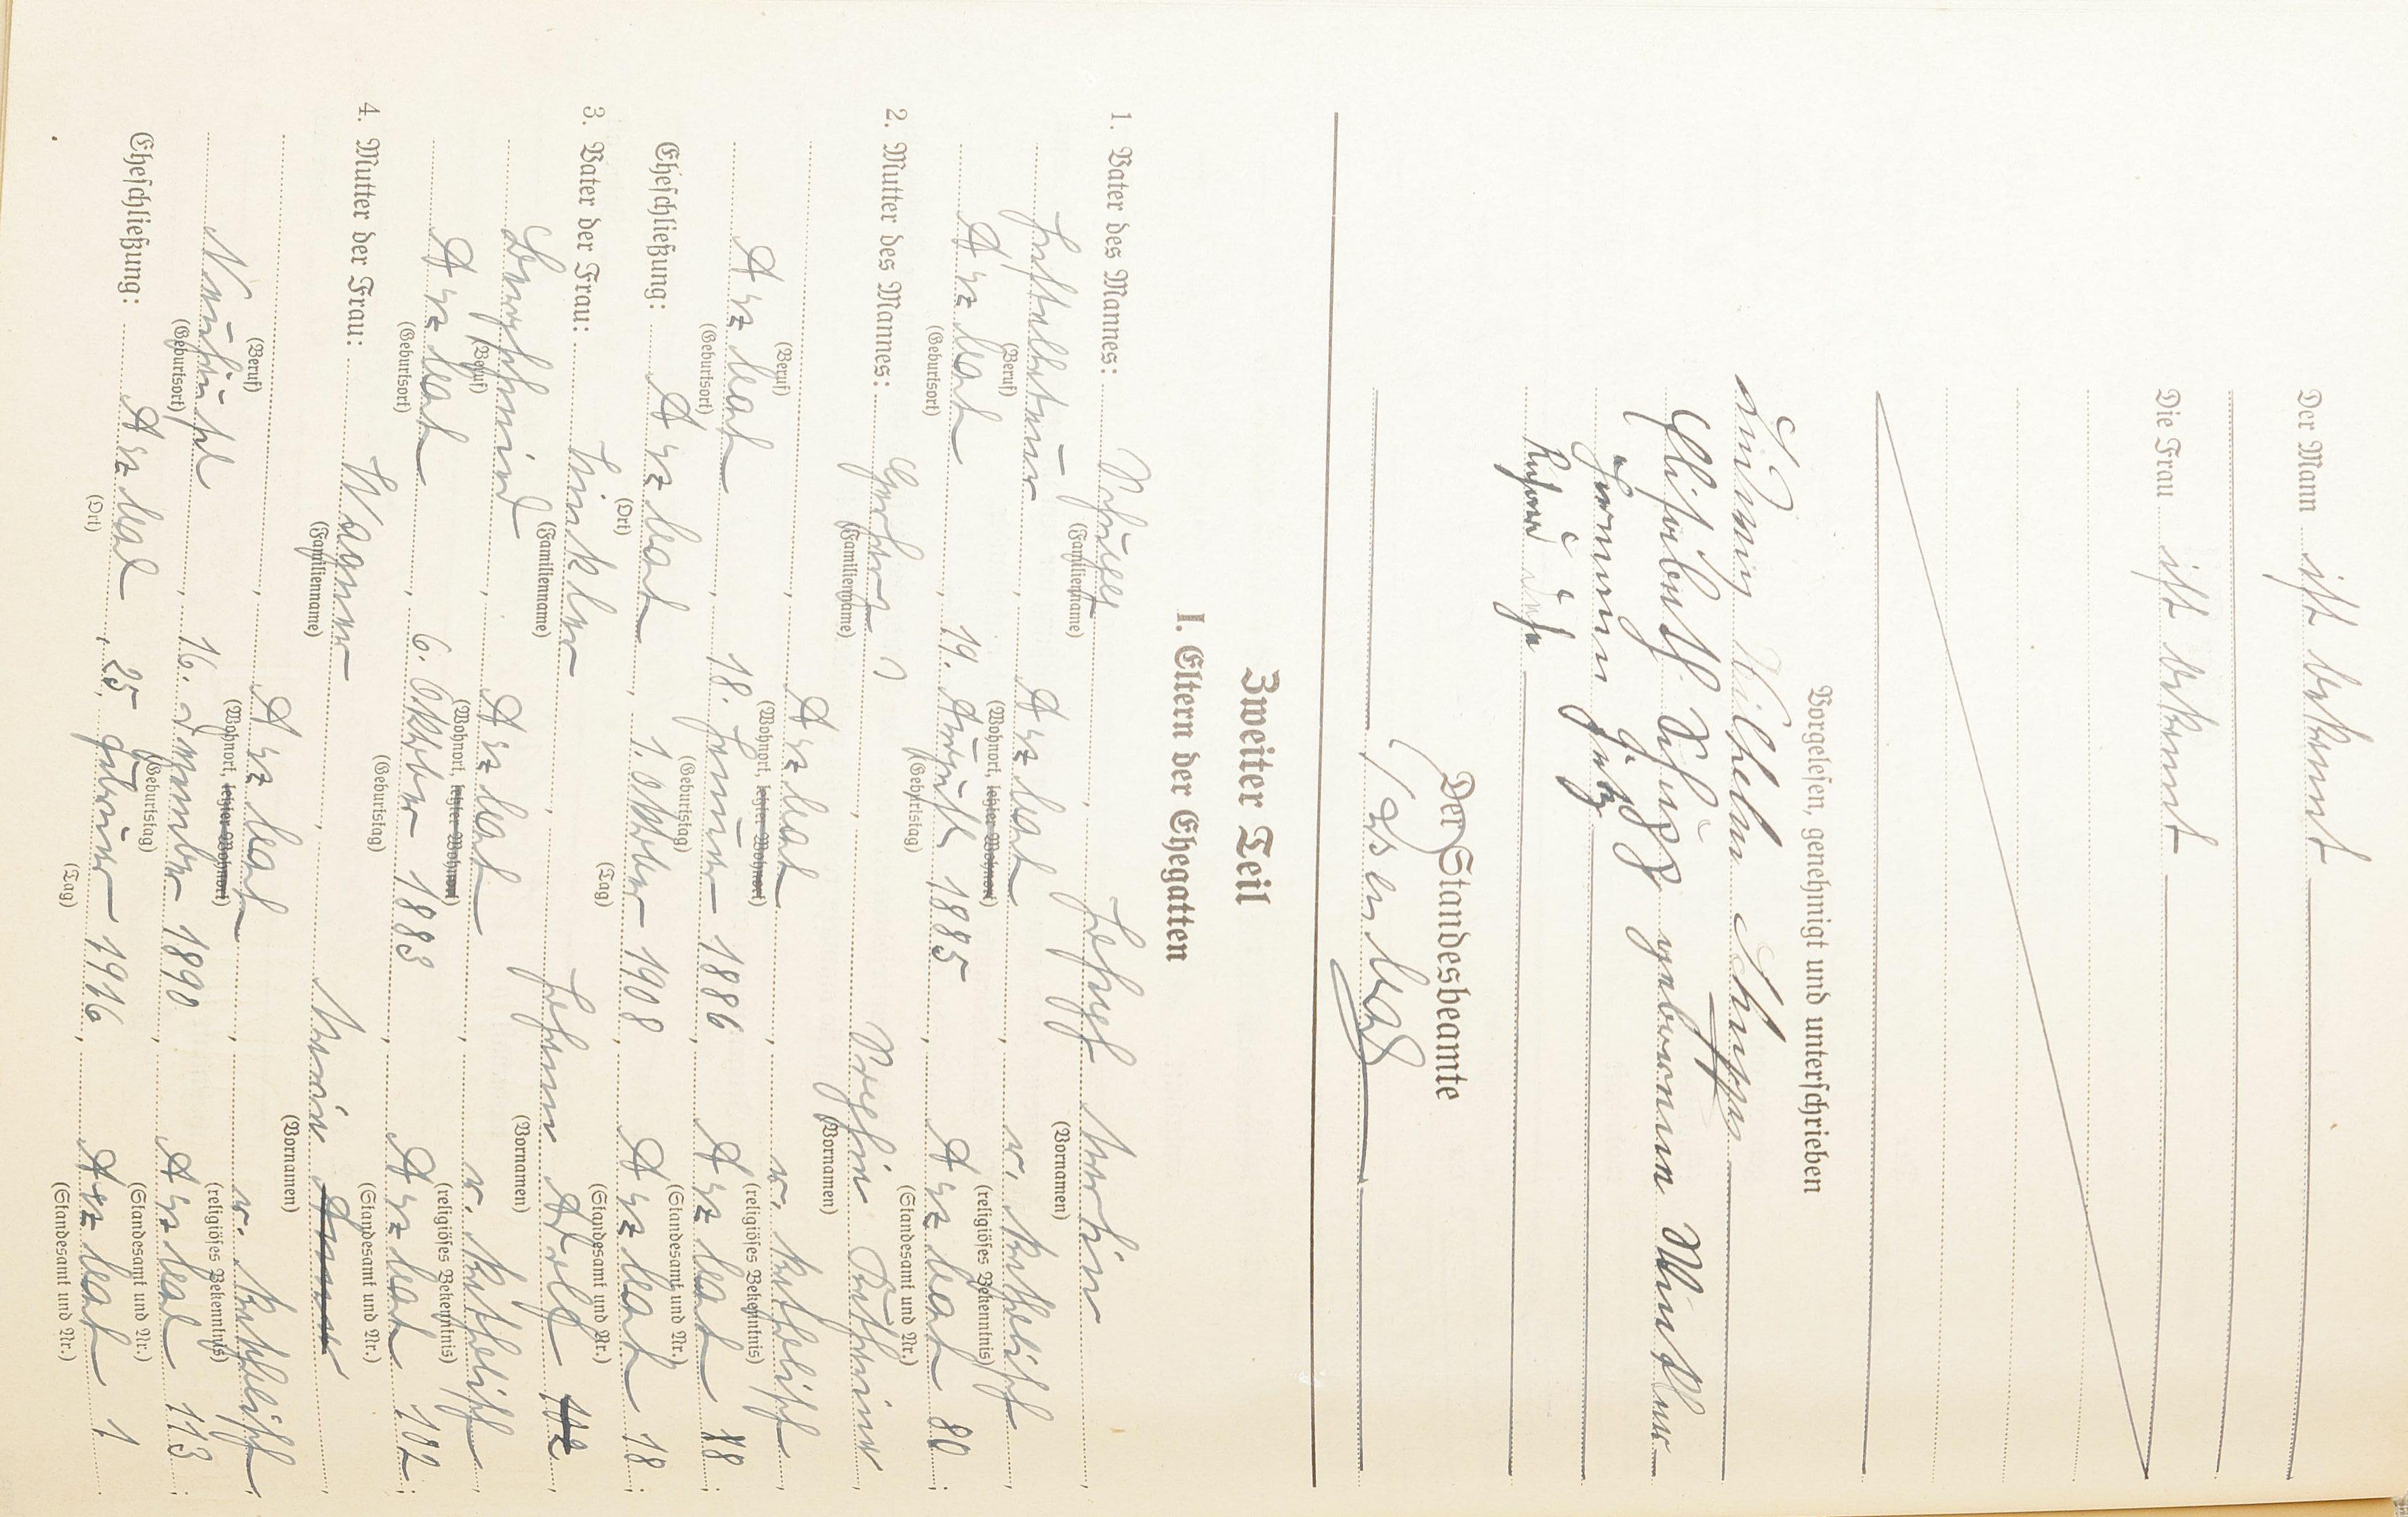 Der Mann ist bekannt
Die Frau ist bekannt
Vorgelesen, genehmigt und unterschrieben
Ludwig Wilhelm
Elisabeth geborene Winkler
Der Standesbeamte
Zweiter Teil
I. Eltern der Ehegatten
1. Vater des Mannes: Joseph Martin
(Familienname) (Vornamen)
Arzbach r. katholisch
(Beruf) (Wohnort, letzter Wohnort) (religiöses Bekenntnis)
Arzbach, 19. August 1885, Arzbach 80;
(Geburtsort) (Geburtstag) (Standesamt und Nr.)
2. Mutter des Mannes: Katharina
(Familienname) (Vornamen)
Arzbach, r. katholisch
(Beruf) (Wohnort, letzter Wohnort) (religiöses Bekenntnis)
Arzbach, 18. Januar 1886, Arzbach 18;
(Geburtsort) (Geburtstag) (Standesamt und Nr.)
Eheschließung: Arzbach, 1. Oktober 1908, Arzbach 18;
(Ort) (Tag) (Standesamt und Nr.)
3. Vater der Frau: Winkler, Johann Adolf
(Familienname) (Vornamen)
Arzbach, r. katholisch
(Beruf) (Wohnort, letzter Wohnort) (religiöses Bekenntnis)
Arzbach, 6. Oktober 1883, Arzbach 102;
(Geburtsort) (Geburtstag) (Standesamt und Nr.)
4. Mutter der Frau: Wagner, Maria Anna
(Familienname) (Vornamen)
Arzbach, r. katholisch
(Beruf) (Wohnort, letzter Wohnort) (religiöses Bekenntnis)
Neuhäusel, 16. Dezember 1890, Arzbach 113;
(Geburtsort) (Geburtstag) (Standesamt und Nr.)
Eheschließung: Arzbach, 25. Februar 1916, Arzbach 1
(Ort) (Tag) (Standesamt und Nr.)